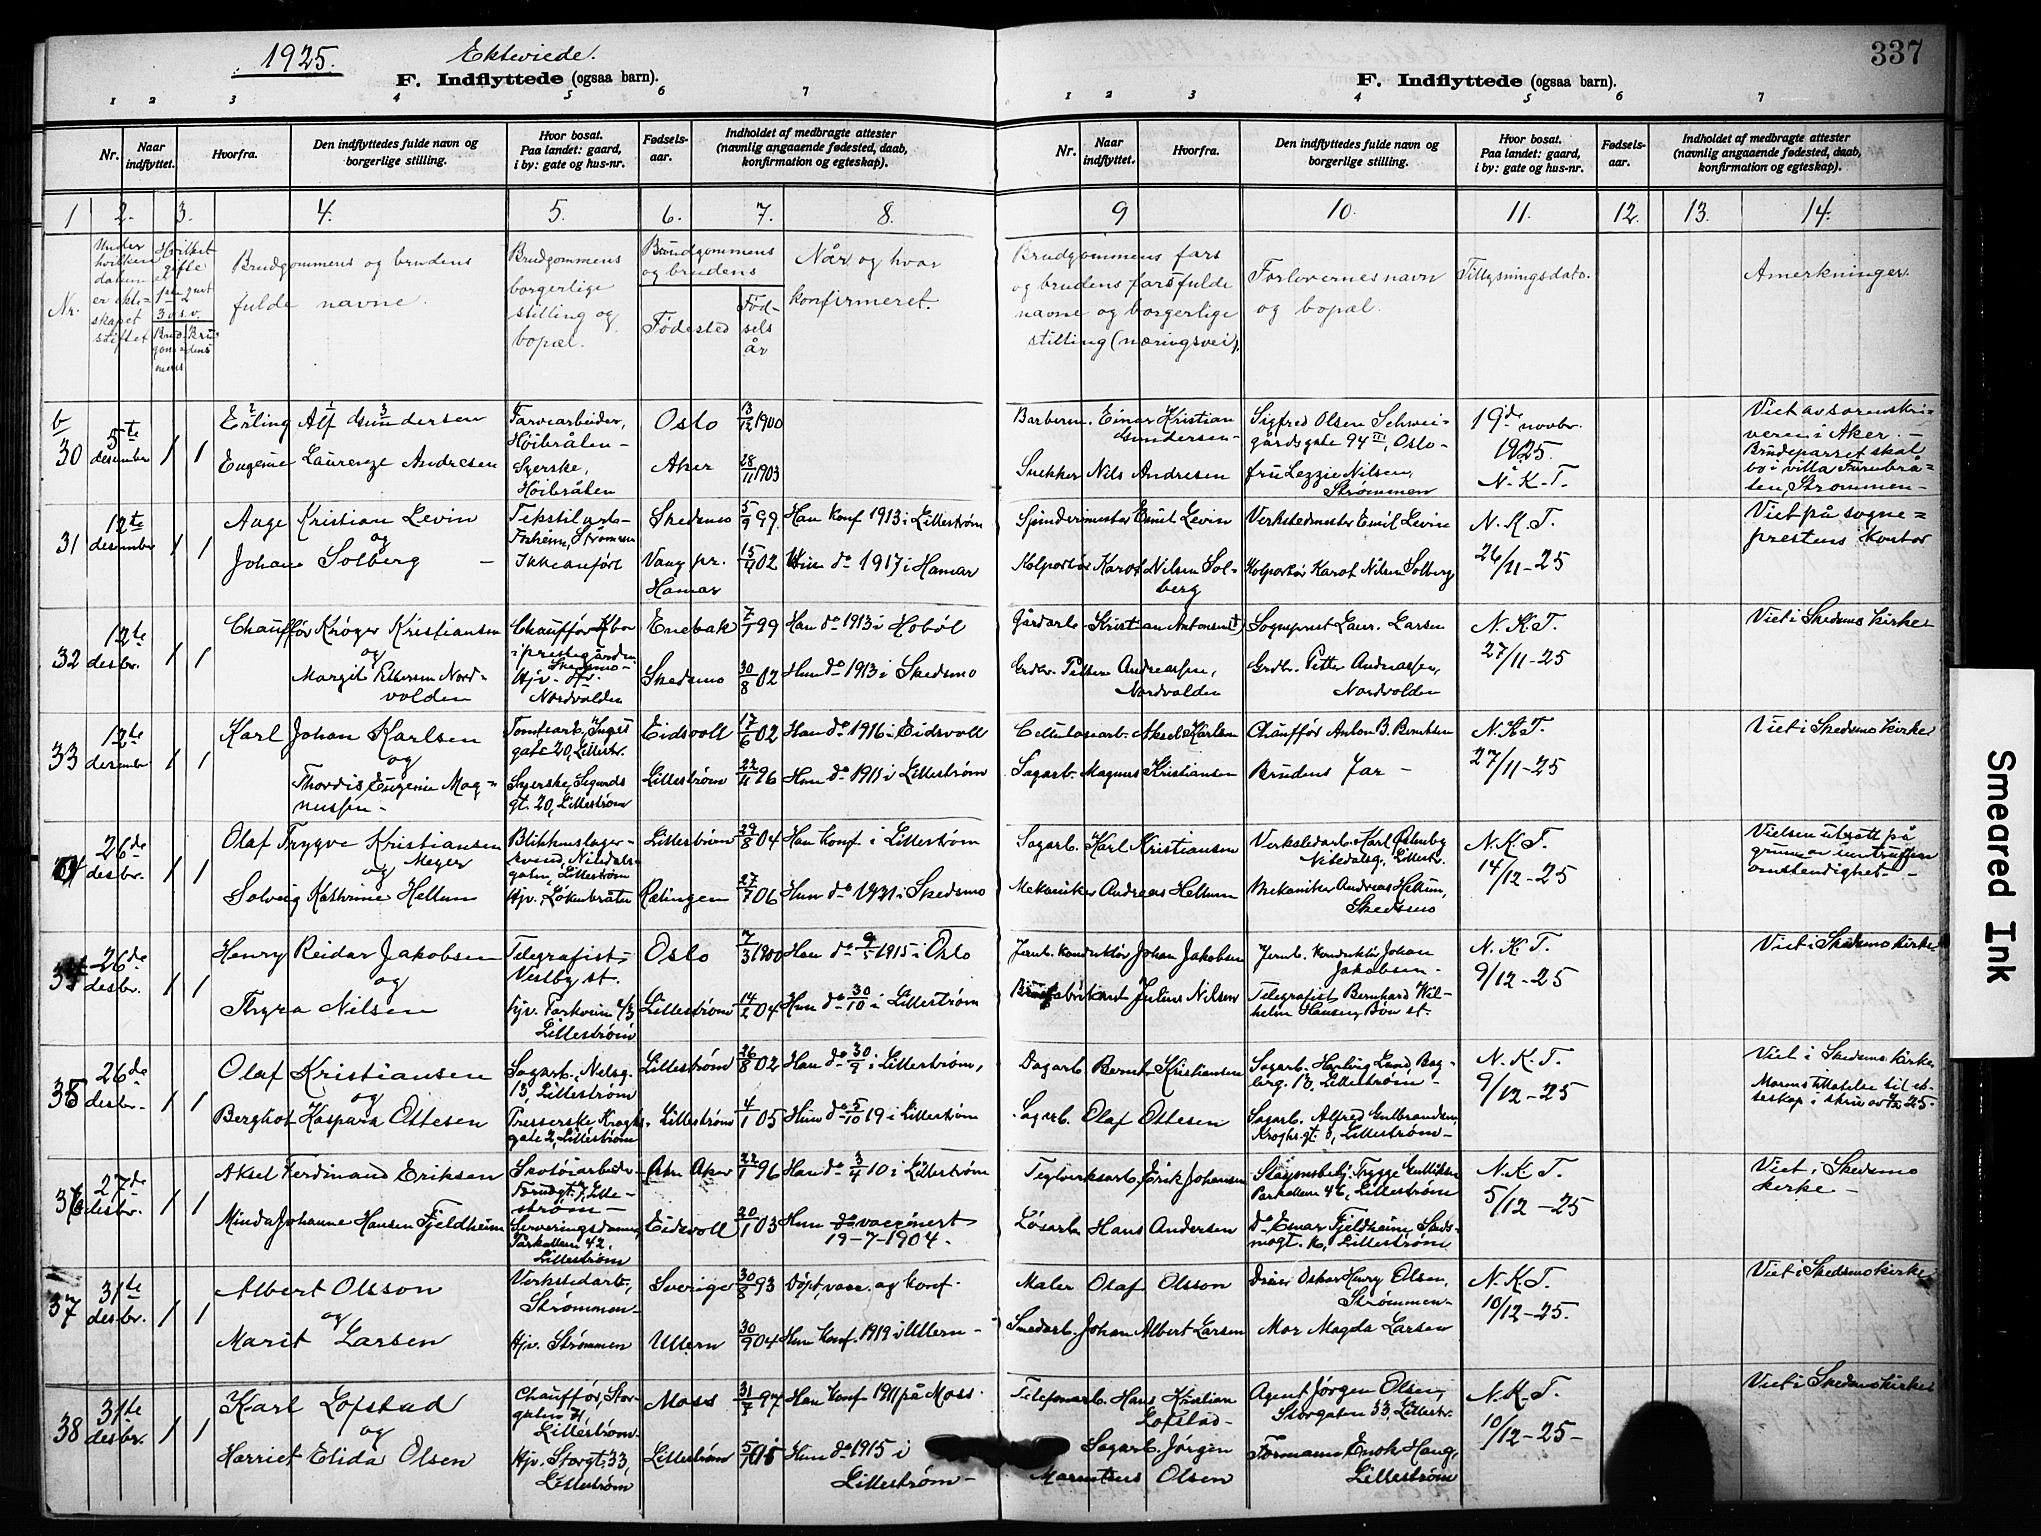 1925. Ekteviede.
F. Indflyttede (ogsaa barn).
1 2 3 4 5 6 7
Nr.
Naar indflyttet.
Hvorfra.
Den indflyttedes fulde navn og borgerlige stilling.
Hvor bosat.
Paa landet: gaard,
i by: gate og hus-nr.
Fødsels-
aar.
Indholdet af medbragte attester
(navnlig angaaende fødested, daab,
konfirmation og egteskap).
1 2. 3. 4. 5. 6. 7. 8.
Nr.
Under
hvilken
datum
er ekte-
skapet
stiftet
Hvilket
gifte
Brudgommens og brudens
fulde navne.
Brudgommens
borgerlige
stilling og
bopæl.
Brudgommens
og brudens
Fødested
Fød-
sels
år
Når og hvor
konfirmeret.
30 5te desember 1 1
Erling Alf Gundersen
Eugenie Laurenze Andresen
Farvearbeider,
Høibråten -
Syerske,
Høibråten
Oslo 13/12 1900
Aker 28/11 1903
31 12te desember 1 1
Aage Kristian Levin
og
Johane Solberg
Ikke anført
Skedsmo 5/9 99 Han konf 1913 i Lillestrøm
Vang pr. Hamar 15/4 02 Hun do 1917 i Hamar
32 12te desbr. 1 1
Chauffør Krøger Kristiansen
og
Margit Pettersen Nord-
volden
Chauffør
i prestegården
Skedsmo -
Nordvolden
Enebak 7/1 99 Han do 1913 i Hobøl
Skedsmo 30/8 02 Hun do 1913 i Skedsmo
33 12te desember 1 1
Karl Johan Karlsen
og
Thordis Eugenie Mag-
nussen -
Tomtearb., Inges
gate 20, Lillestr.
Syerske, Sigurds
gt. 20, Lillestrøm
Eidsvoll 17/6 02 Han do 1916 i Eidsvoll
Lillestrøm 22/11 96 Hun do 1911 i Lillestrøm
26de desbr. 1 1
Olaf Trygve Kristiansen
og Meyer
Solveig Kathrine Hellum
Blikkenslager-
Lillestrøm
Lillestrøm 29/8 04 Han konf i Lillestrøm
Rælingen 27/7 06 Hun do 1921 i Skedsmo
26de desbr. 1 1
Henry Reidar Jakobsen
og
Thyra Nilsen
Telegrafist,
Vestby st.
Hjv. Parkveien 43
Lillestrøm
Oslo 7/3 1900 Han do 9/5 1915 i Oslo
Lillestrøm 14/2 04 Hun do 30/10 i Lillestrøm
35 26de desbr. 1 1
Olaf Kristiansen
og
Berghot Kaspara Ottesen
Sagarb., Nelsg.
13, Lillestrøm
Presserske, Kroghs
gate 2, Lillestrøm
Lillestrøm 26/8 02 Han do 30/9 i Lillestrøm,
Lillestrøm 4/1 05 Hun do 5/10 19 i Lillestrøm
36 27de desbr. 1 1
Aksel Ferdinand Eriksen
Minda Johanne Hansen Fjeldheim
Skotøiarbeider
Lille-
strøm -
Serveringsdame,
Parkalleen 42,
Lillestrøm
Aker 22/1 96 Han do 3/4 10 i Lillestrøm
Eidsvoll 20/1 03 Hun do vaccinert
19-7-1904.
37 31te desbr. 1 1
Albert Olsson
og
Marit Larsen
Verkstedarb.,
Strømmen -
Hjv. Strømmen
Sverige 30/8 93 Døpt, vacc. og konf.
Ullern 30/9 04 Hun konf. 1919 i Ullern -
38 31te desbr. 1 1
Karl Lofstad
og
Harriet Elida Olsen
Chauffør, Stor-
gaten
Lillestrøm
Hjv. Storgt. 33,
Lillestrøm
Moss 97 Han konf 1911 på Moss.
Lillestrøm Hun do 1915 i
Lillestrøm -
337
F. Indflyttede (ogsaa barn).
1 2 3 4 5 6 7
Nr.
Naar indflyttet.
Hvorfra.
Den indflyttedes fulde navn og borgerlige stilling.
Hvor bosat.
Paa landet: gaard,
i by: gate og hus-nr.
Fødsels-
aar.
Indholdet af medbragte attester
(navnlig angaaende fødested, daab,
konfirmation og egteskap).
9 10. 11. 12. 13. 14.
Brudgommens fars
og brudens fars fulde
navne og borgerlige
stilling (næringsvei).
Forlovernes navn
og bopæl.
Tillysningsdato.
Anmerkninger.
Barberm. Einar Kristian
Gundersen -
Snekker Nils Andresen
Sigfred Olsen Schwei-
gårdsgate 94 III, Oslo -
fru Lezzie Nilsen,
Strømmen
19de novbr.
1925.
N. K. T.
Viet av sorenskri-
veren i Aker. -
Brudeparret skal
bo i villa Furubrå-
ten, Strømmen -
Spinderimester Emil Levin
Kolportør Karot Nilsen Sol-
berg
Verkstedmester Emil Levin
Kolportør Karot Nilsen Solberg
N. K. T.
26/11-25
Viet på sogne-
prestens kontor
Gårdarb. Kristian Antonsen
Grdbr. Petter Andreassen,
Nordvolden
Sogneprest Laur. Larsen
Grdbr. Petter Andreassen,
Nordvolden
N. K. T.
27/11-25
Viet i Skedsmo kirke
Cellulosearb. Aksel Karlsen
Sagarb. Magnus Kristiansen
Chauffør Anton B. Berntsen
Brudens far -
N. K. T.
27/11-25
Viet i Skedsmo kirke
Sagarb. Karl Kristiansen
Mekaniker Andreas Hellum
Verkstedarb. Karl Østenby
Nitedalsg., Lillestr.
Mekaniker Andreas Hellum,
Skedsmo
N. K. T.
14/12-25
Vielsen utsatt på
grunn av inntruffen
omstendighet -
Jernb. konduktør Johan Jakobsen
Julius Nilsen
Jernb. konduktør Johan
Jakobsen -
Telegrafist Bernhard Wil-
helm Hansen, Bøn st.
N. K. T.
9/12-25
Viet i Skedsmo kirke
Dagarb. Bernt Kristiansen
Sagarb. Olaf Ottesen
Sagarb. Hartvig Lund, Bag-
Lillestrøm -
Sagarb. Alfred Gulbrandsen,
Kroghs gt. 3, Lillestrøm -
N. K. T.
9/12-25
Viet i Skedsmo kirke
Morens tillatelse til ek-
teskap i skriv av
Teglverksarb. Erik Johansen
Løsarb. Hans Andersen
Stasjonsbetj. Trygve Gulliksen
Parkalleen 46, Lillestrøm
do Einar Fjeldheim,
Lillestrøm
N. K. T.
5/12-25
Viet i Skedsmo
kirke -
Maler Olaf Olsson
Smedarb. Johan Albert Larsen
Dreier Oskar Henry Olsen,
Strømmen -
Mor Magda Larsen
N. K. T.
10/12-25.
Viet i Skedsmo kirke
Telefonarb. Hans Kristian
Lofstad -
Sagarb. Jörgen
Olsen
Agent Jørgen Olsen,
Storgaten 33, Lillestr.
Formann Enok Haug,
Lillestrøm
N. K. T.
10/12-25-
Viet i Skedsmo kirke
Smeared Ink